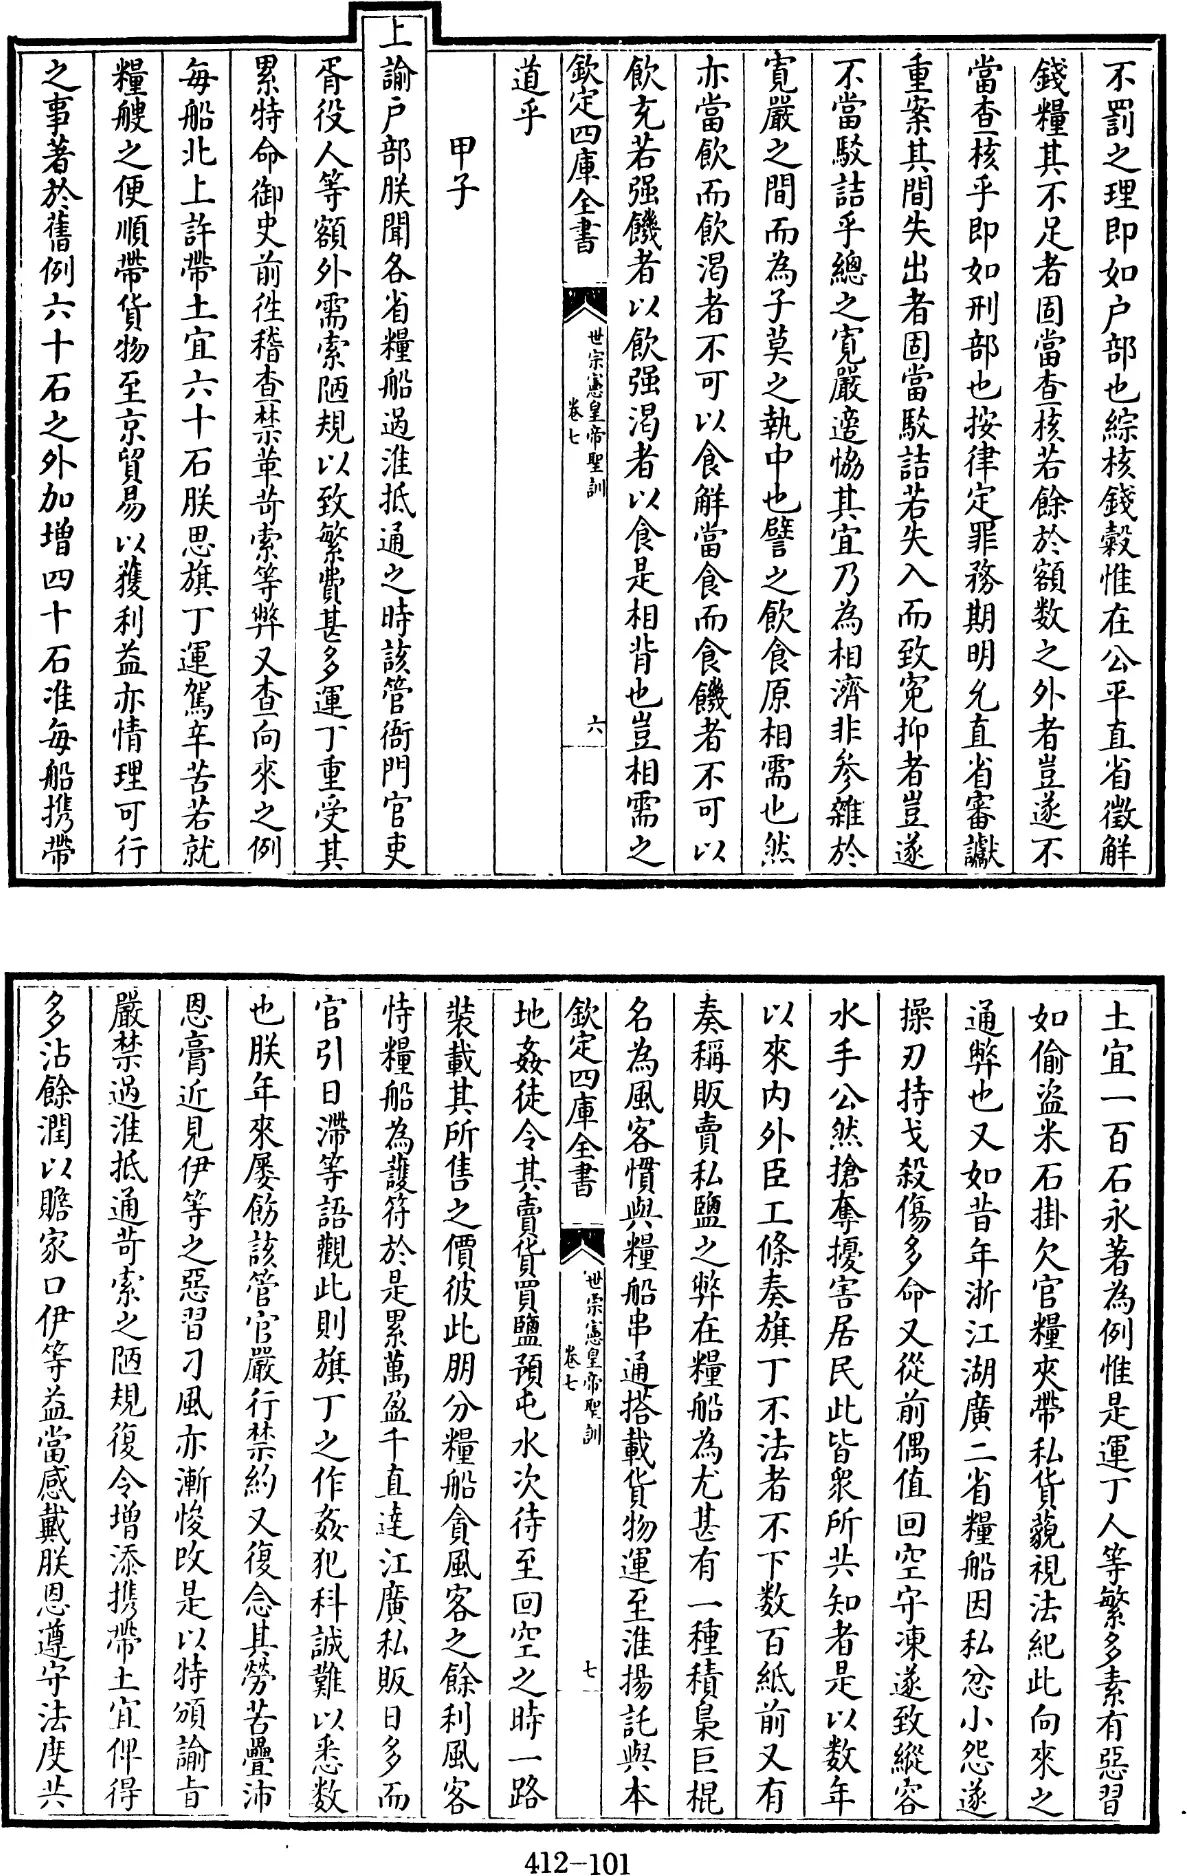 不罰之理即如户部也綜核錢榖惟在公平直省徵解
錢糧其不足者固當查核若餘於額数之外者豈遂不
當查核乎即如刑部也按律定罪務期明允直省審讞
重案其間失出者固當駁詰若失入而致寃抑者豈遂
不當駁詰乎總之寛嚴適恊其宜乃為相濟非參雜於
寛嚴之間而為子莫之執中也譬之飲食原相需也然
亦當飲而飲渴者不可以食解當食而食饑者不可以
飲充若强饑者以飲强渴者以食是相背也豈相需之
欽定四庫全書
世宗憲皇帝聖訓
卷七
六
道乎
甲子
上諭户部朕聞各省糧船過淮抵通之時該管衙門官吏
胥役人等額外需索陋規以致繁費甚多運丁重受其
累特命御史前徃稽查禁革苛索等弊又查向來之例
每船北上許帶土宜六十石朕思旗丁運駕辛苦若就
糧艘之便順帶貨物至京貿易以獲利益亦情理可行
之事著於舊例六十石之外加增四十石准每船携帶
土宜一百石永著為例惟是運丁人等繁多素有惡習
如偷盜米石掛欠官糧夾帶私貨藐視法紀此向來之
通弊也又如昔年浙江湖廣二省糧船因私忿小怨遂
操刃持戈殺傷多命又從前偶值回空守凍遂致縱容
水手公然搶奪擾害居民此皆衆所共知者是以数年
以來内外臣工條奏旗丁不法者不下数百紙前又有
奏稱販賣私鹽之弊在糧船為尤甚有一種積梟巨棍
名為風客慣與糧船串通搭載貨物運至淮揚託與本
欽定四庫全書
世宗憲皇帝聖訓
卷七
七
地姦徒令其賣貨買鹽預屯水次待至回空之時一路
装載其所售之價彼此朋分糧船貪風客之餘利風客
恃糧船為護符於是累萬盈千直達江廣私販日多而
官引日滯等語觀此則旗丁之作姦犯科誠難以悉数
也朕年來屡飭該管官嚴行禁約又復念其勞苦疊沛
恩膏近見伊等之惡習刁風亦漸悛改是以特頒諭旨
嚴禁過淮抵通苛索之陋規復令增添携帶土宜俾得
多沾餘潤以贍家口伊等益當感戴朕恩遵守法度共
412-101